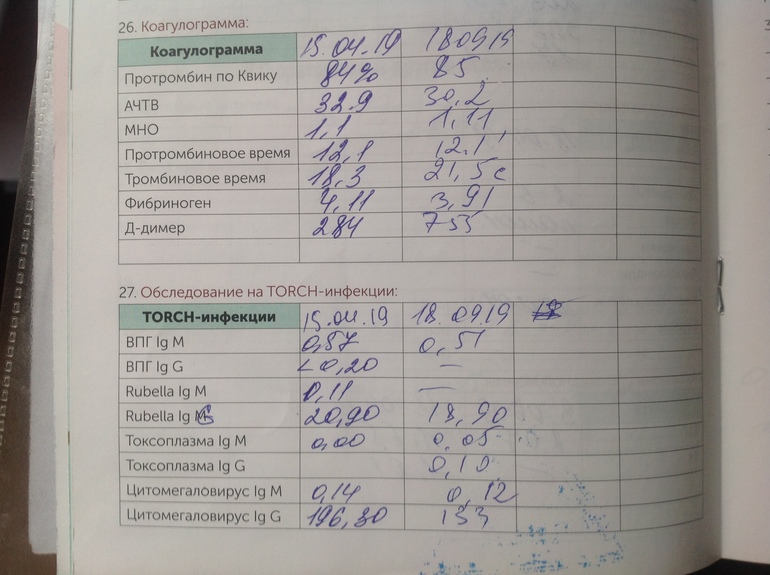 26. Коагулограмма:
Коагулограмма 15.04.19 180919
Протромбин по Квику 84% 85
АЧТВ 32.9 30,2
МНО 1,1 1,11
Протромбиновое время 12,1 12.1
Тромбиновое время 18,3 21,5с
Фибриноген 4,11 3,91
Д-димер 284 755
27. Обследование на TORCH-инфекции:
TORCH-инфекции 15.04.19 18.0919
ВПГ Ig M 0,57 0,51
ВПГ Ig G <0,20 —
Rubella Ig M 0,11 —
Rubella Ig G 20,90 18,90
Токсоплазма Ig M 0,00 0,05
Токсоплазма Ig G 0,10
Цитомегаловирус Ig M 0,14 0,12
Цитомегаловирус Ig G 196,30 153